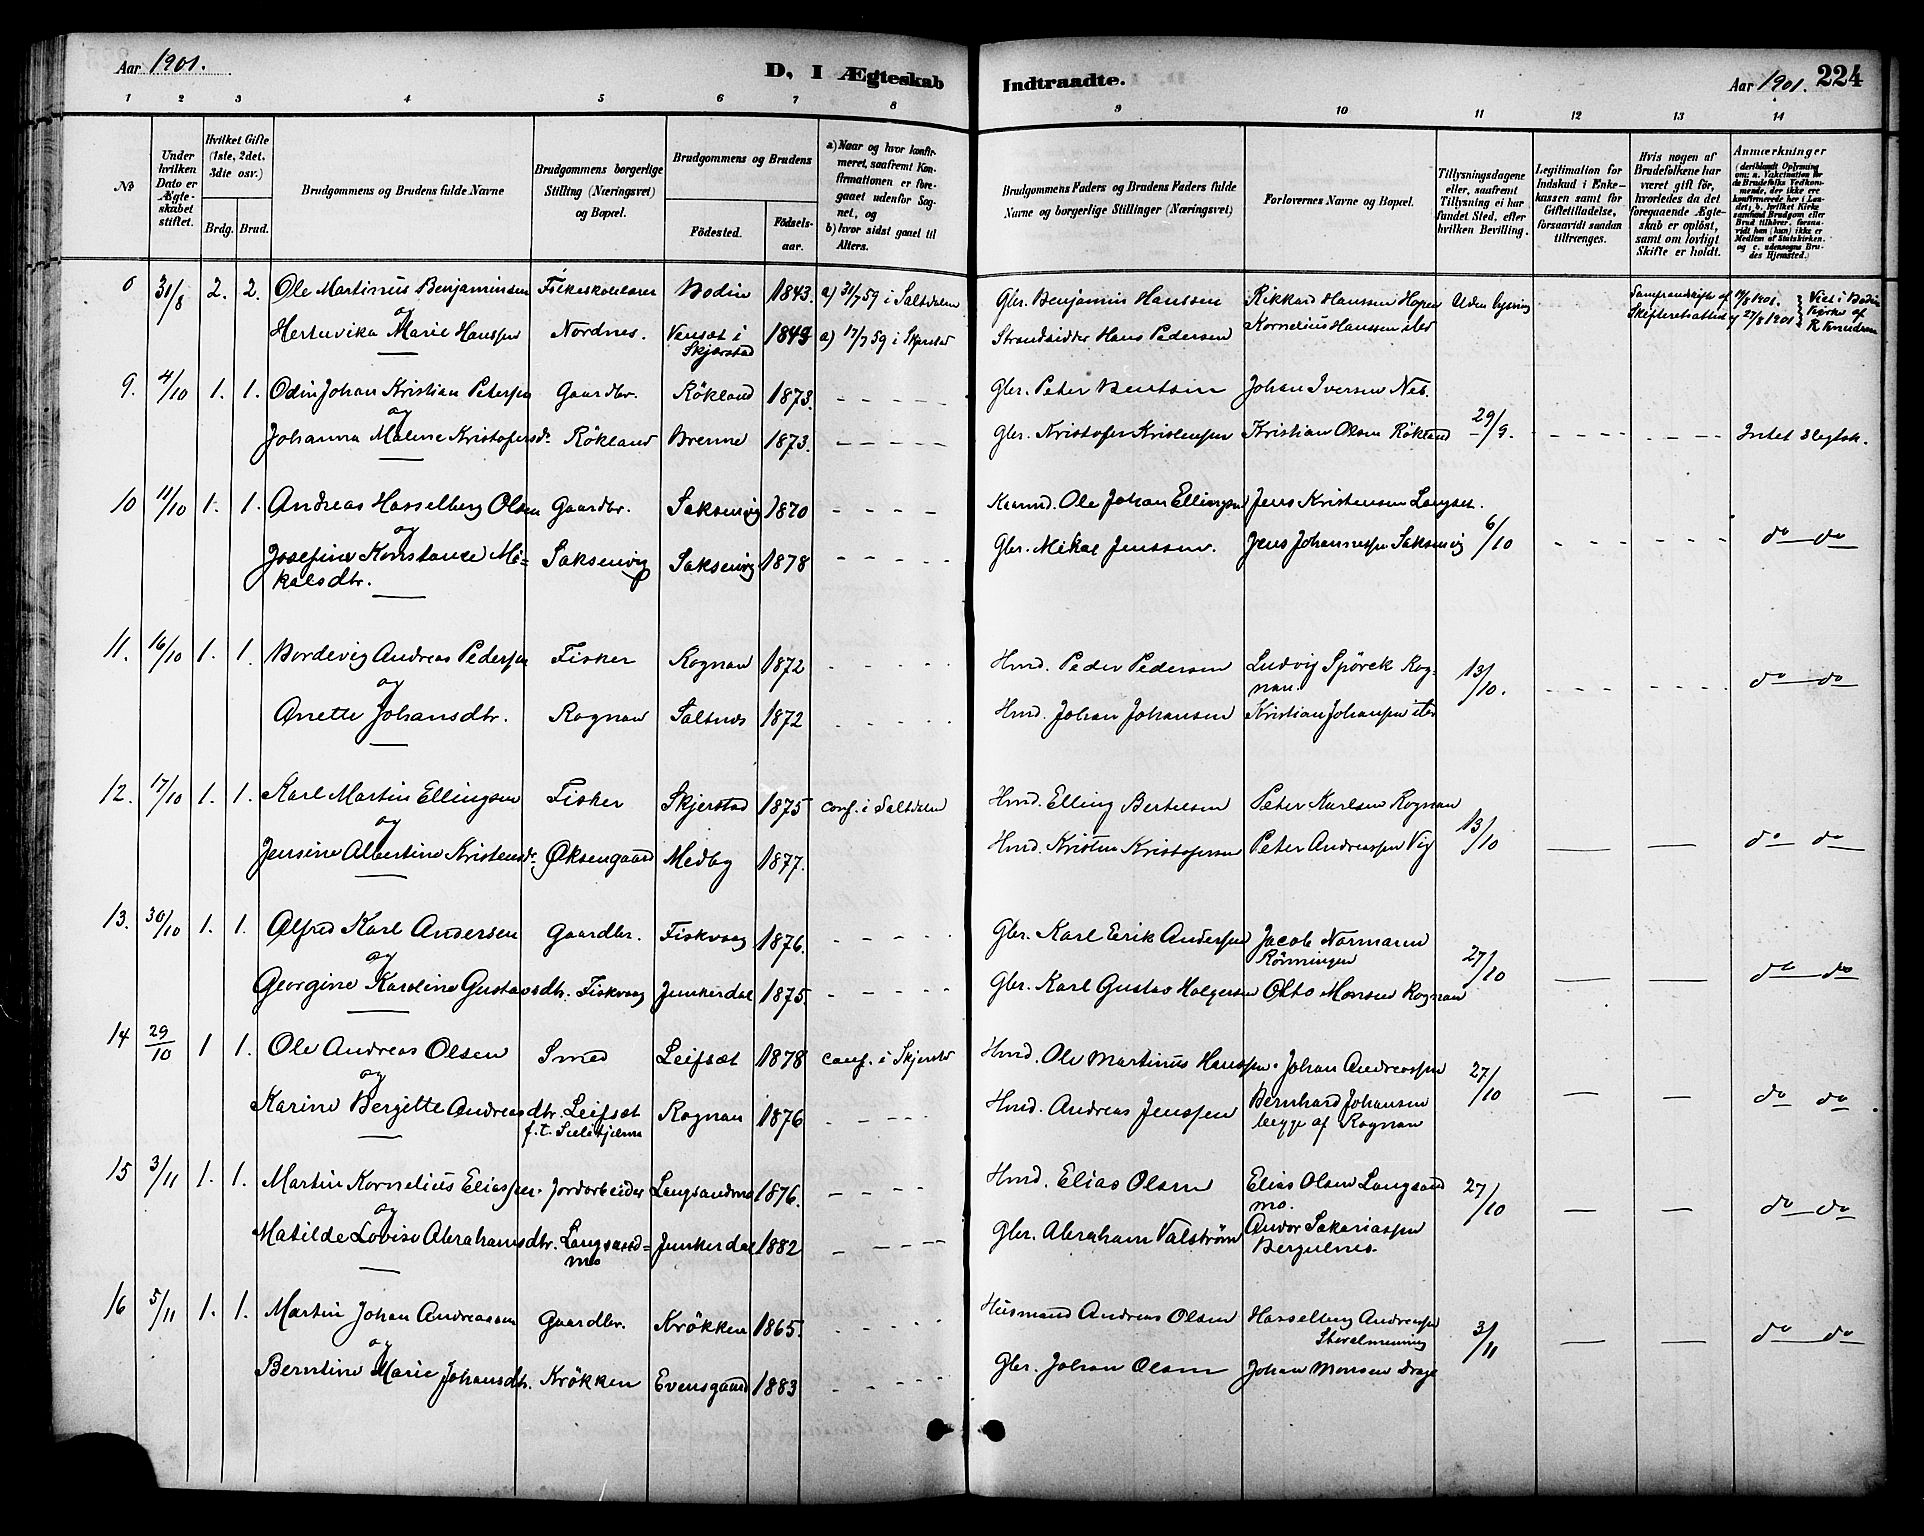 Aar 1901.
D. I Ægteskab
Indtraadte.
Aar 1901.
224
1 2 3 4 5 6 7 8 9 10 11 12 13 14
№
Under hvilken Dato er Ægteskabet stiftet.
Hvilket Gifte (1ste, 2det, 3die osv.)
Brdg. Brud.
Brudgommens og Brudens fulde Navne
Brudgommens borgerlige Stilling (Næringsvei) og Bopæl.
Brudgommens og Brudens
Fødested.
Fødselsaar.
a) Naar og hvor konfirmeret, saafremt Konfirmationen er foregaaet udenfor Sognet, og
b) hvor sidst gaaet til Alters.
Brudgommens Faders og Brudens Faders fulde Navne og borgerlige Stillinger (Næringsvei)
Forlovernes Navne og Bopæl.
Tillysningsdagene eller, saafremt Tillysning ei har fundet Sted, efter hvilken Bevilling.
Legitimation for Indskud i Enkekassen samt for Giftetilladelse, forsaavidt saadan tiltrænges.
Hvis nogen af Brudefolkene har været gift før, hvorledes da det foregaaende Ægteskab er opløst, samt om lovligt Skifte er holdt.
Anmærkninger
(deriblandt Oplysning om: a. Vakcination for de Brudefolks Vedkommende, der ikke ere konfirmerede her i Landet; b. hvilket Kirkesamfund Brudgom eller Brud tilhører, forsaavidt han (hun) ikke er Medlem af Statskirken. og c. udensogns Brudes Hjemsted.)
31/8 2. 2. Ole Martinus Benjaminsen Bodin 1843. a) 31/7 59 i Saltdalen Gbr. Benjamin Hanssen Rikkard Hanssen Hopen Uden lysning
og
Marie Hanssen Nordnes. Skjerstad 1849 a) 17/7 59 i Skjerstad Strandsidder Hans Pedersen Kornelius Hanssen
9. 4/10 1. 1. Odin Johan Kristian Petersen Gaardbr. Røkland 1873. Gbr. Peter Bentsen Johan Iversen Nes.
og
Johanna Maline Kristofersdr. Røkland Brenne 1873. Gbr. Kristofer Kristensen Kristian Olsen Røkland 29/9. Intet Slegtsk.
10 11/10 1. 1. Andreas Hasselberg Olsen Gaardbr. Saksenvig 1870 Ole Johan Ellingsen Jens Kristensen Langset.
og
Josefine Konstanse Mikalsdtr. Saksenvig Saksenvig 1878 Gbr. Mikal Jenssen. Jens Johannessen Saksenvig 6/10 do do
11. 16/10 1. 1. Hordevig Andreas Pedersen Fisker Rognan 1872 Hmd. Peder Pedersen Ludvig Spørck Rognan.
og
Anette Johansdtr. Rognan Saltnes 1872 Hmd. Johan Johansen Kristian Johansen 13/10. do do
12. 17/10 1. 1. Karl Martin Ellingsen Fisker Skjerstad 1875 conf. i Saltdalen Hmd. Elling Bertelsen Peter Karlsen Rognan
og
Jensine Albertine Kristensdr. Øksengaard Medby 1877. Hmd. Kristen Kristofersen Peter Andreassen Vig 13/10 do do
13. 30/10 1. 1. Alfred Karl Andersen Gaardbr. Fiskvaag 1876. Gbr. Karl Erik Anderssen Jacob Normann Rønningen
og
Georgine Karoline Gustavsdtr. Fiskvaag Junkerdal 1875. Gbr. Karl Gustav Holgersen Otto Monsen Rognan 27/10 do do
14 29/10 1 1. Ole Andreas Olsen Smed Leifset 1878 conf. i Skjerstad Hmd. Ole Martinus Hanssen. Johan Andreassen
og
Karine Bergitte Andreasdtr. Leifset Rognan 1876 Hmd. Andreas Jenssen Bernhard Johansen 27/10 do do
f.t. begge af Rognan
15 3/11 1. 1. Martin Kornelius Eliassen. Jordarbeider Langsandmo 1876. Hmd. Elias Olsen Elias Olsen Langsandmo.
og
Matilde Lovise Abrahamsdtr. Langsandmo Junkerdal 1882 Gbr. Abraham Valstrøm Andor Sakariassen Bergulnes. 27/10 do do
16 5/11 1. 1. Martin Johan Andreassen Gaardbr. Krøkken 1865. Husmand Andreas Olsen Hasselberg Andreassen Storalmening
og
Berntine Marie Johansdtr. Krøkken Evensgaard 1883 Gbr. Johan Olsen Johan Monsen Drage 3/11 do do